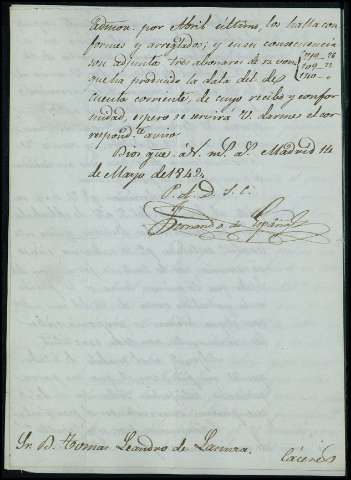 admon. por Abril último, los halla con-
formes y arreglados; y en su consecuencia
son adjuntos tres abonares de rs. von
que ha producido la data del des-
cuenta corriente, de cuyo recibo y confor-
midad, espero se servirá V. darme el cor-
respond.te aviso.
Dios gue. á V. ms. as. Madrid 14
de Mayo de 1842.
P. d. D. S. C.
Fernando de
Sr. D. Tomas Leandro de
Cáceres